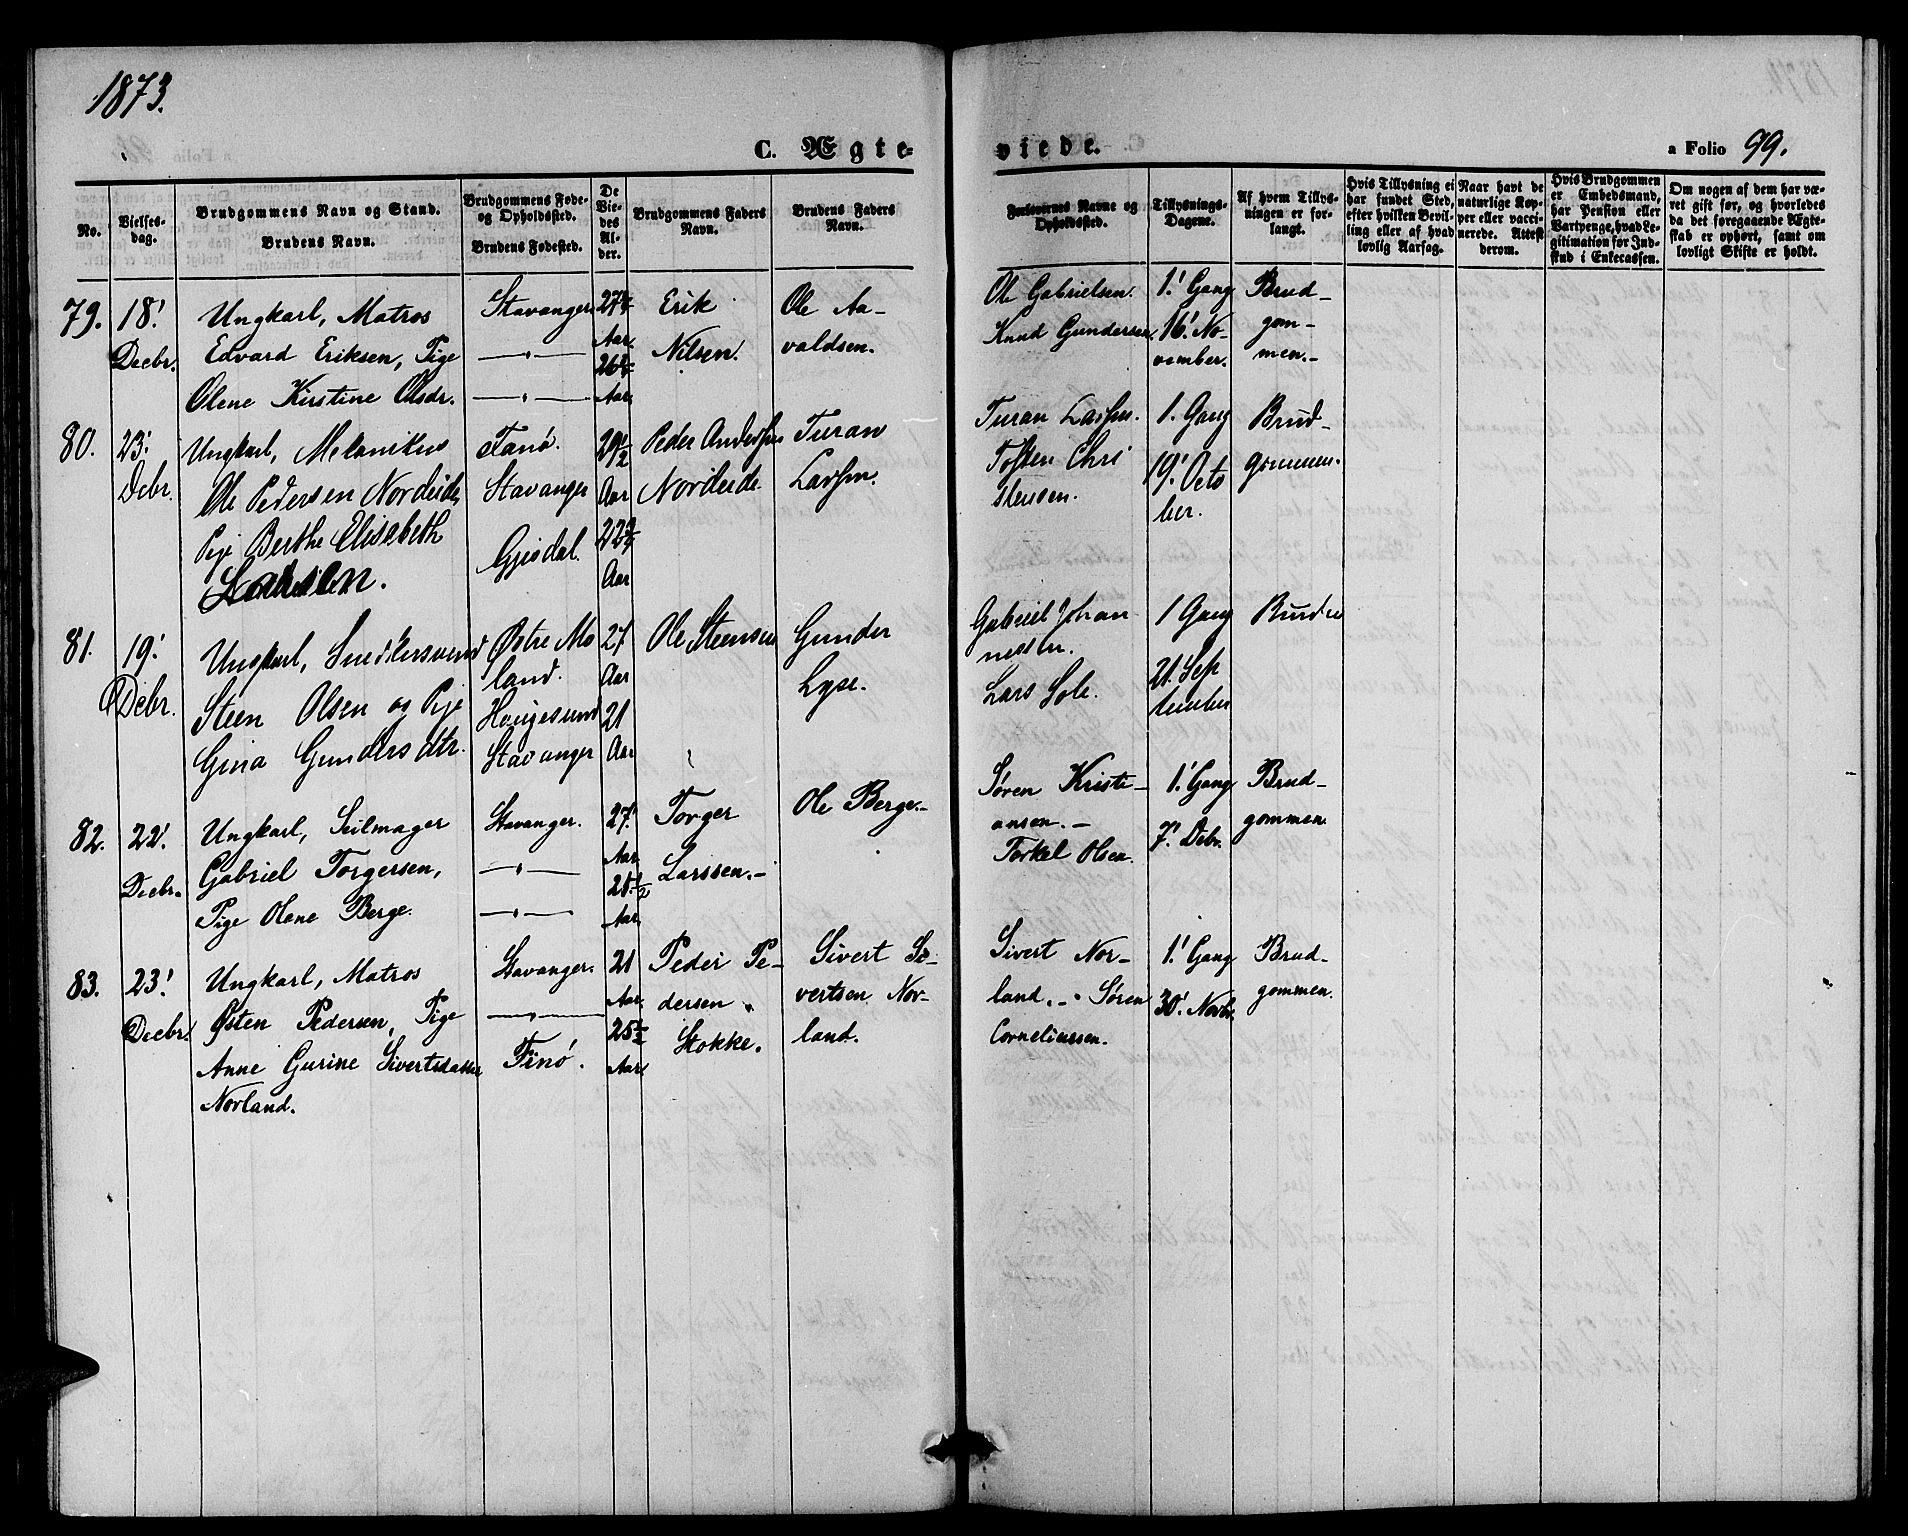 1873.
C. Ægte-
viede.
a Folio 99.
No.
Vielses-
dag.
Brudgommens Navn og Stand.
Brudens Navn.
Brudgommens Føde-
og Opholdssted.
Brudens Fødested.
De
Vie-
des
Al-
der.
Brudgommens Faders
Navn.
Brudens Faders
Navn.
Forlovernes Navne og
Opholdssted.
Tillysnings-
Dagene.
Af hvem Tillys-
ningen er for-
langt.
Hvis Tillysning ei
har fundet Sted,
efter hvilken Bevil-
ling eller af hvad
lovlig Aarsag.
Naar havt de
naturlige Kop-
per eller vacci-
nerede. Attest
derom.
Hvis Brudgommen
er Embedsmand,
har Pension eller
Vartpenge, hvad Le-
gitimation for Ind-
skud i Enkecassen.
Om nogen af dem har væ-
ret gift før, og hvorledes
da det foregaaende Ægte-
skab er ophørt, samt om
lovligt Skifte er holdt.
79.
18'
Decbr.
Ungkarl, Matros
Edvard Eriksen, Pige
Olene Kirstine Olsdr.
Stavanger
Aar
Aar
Erik
Nilsen.
Ole Aa-
valdsen.
Ol Gabrielsen.
Knud Gundersen.
1' Gang
16' No-
vember.
Brud-
gom-
men.-
80.
23'
Debr.
Ungkarl, Mekanikus
Ole Pedersen Nordeide,
Pige Berthe Elisabeth
Larsen.
Fanø.
Stavanger
Gjesdal.
29 1/2
Aar
Aar
Peder Andersen
Nordeide.
Turan
Larsen.
Turan Larsen.
Tosten Chri
stensen.
1. Gang
19' Octo
ber.
Brud-
gommen.
81.
19'
Decbr.
Ungkarl, Snedkersvend
Steen Olsen og Pige
Gina Gundersdtr.
Østre Mo
land.
Haugesund
Stavanger
27
Aar
21
Aar
Ole Steensen
Gunder
Lyse.
Gabriel Johan
nessen.
Lars Sole.
1 Gang
21. Sep
tember
Bruden
82.
22'
Decbr.
Ungkarl, Seilmager
Gabriel Torgersen,
Pige Olene Berge.
Stavanger.
27.
Aar
Aar
Torger
Larssen.-
Ole Berge.-
Søren Kristi-
ansen.-
Torkel Olsen.
1' Gang
7' Debr.
Brud-
gommen.
83.
23'
Decbr.
Ungkarl, Matros
Østen Pedersen, Pige
Anne Gurine Sivertsdatter
Norland.
Stavanger.
Finø.
21
Aar
Aar
Peder Pe-
dersen
Stokke.
Sivert Si-
vertsen Nor-
land.
Sivert Nor-
land.- Søren
Corneliussen.
1' Gang
30' Novbr.
Brud-
gommen.